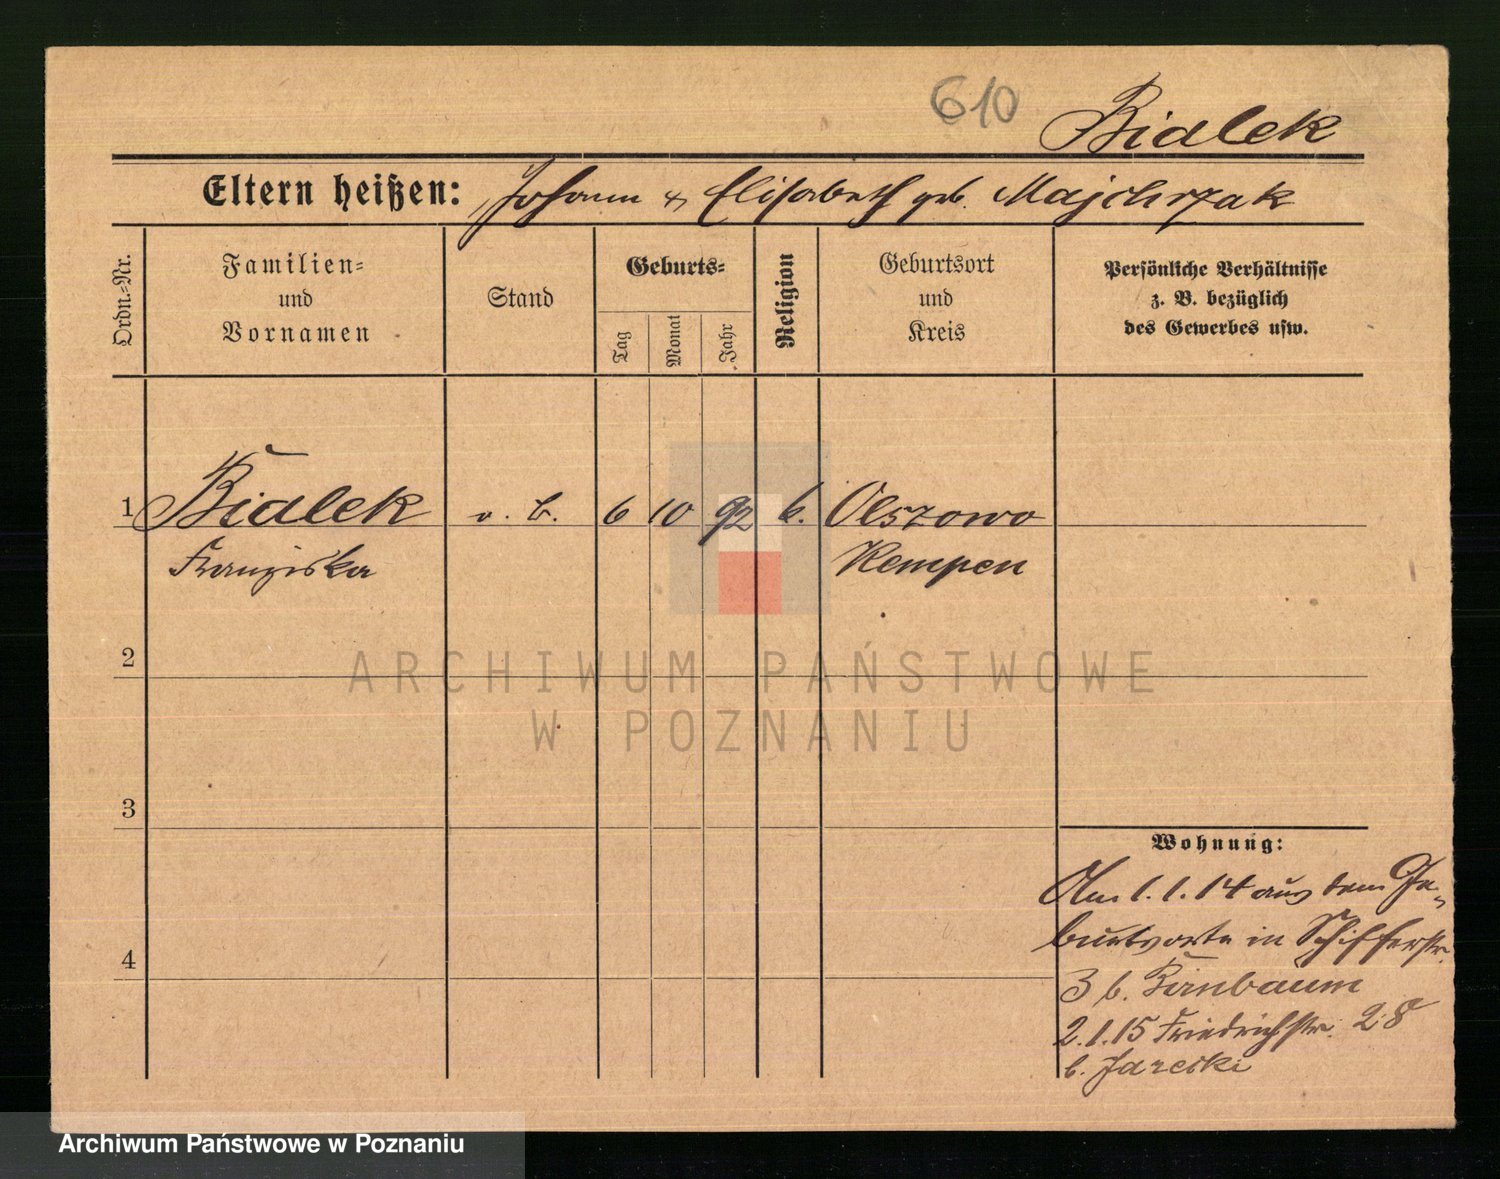 610
Bialek
Eltern heißen: Johann & Elisabeth geb. Majchrzak
Ordn.-Nr.
Familien-
und
Vornamen
Stand
Geburts-
Tag
Monat
Jahr
Religion
Geburtsort
und
Kreis
Persönliche Verhältnisse
z. B. bezüglich
des Gewerbes usw.
1 Bialek o. b. 6 10 92 k. Olszowo
Franziska Kempen
2
ARCHIWUM PAŃSTWOWE
W POZNANIU
3
Wohnung:
Am 1.1.14 aus dem Ge-
burtsorte in Schifferstr.
4
3 b. Birnbaum
2.1.15 Friedrichstr. 28
b. Jarecki
Archiwum Państwowe w Poznaniu